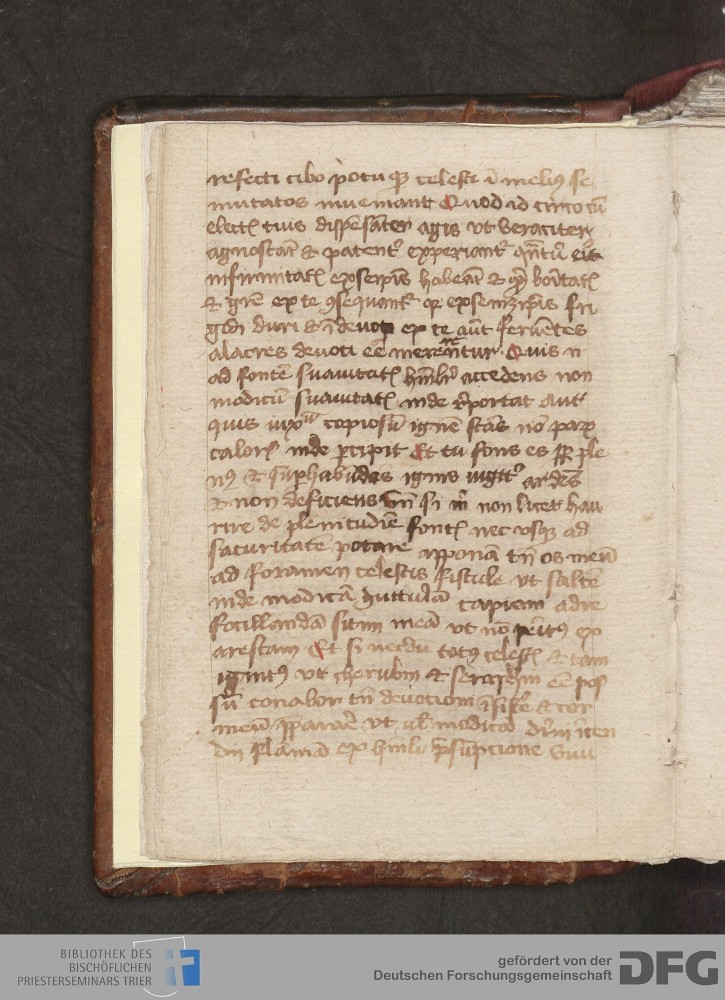 refecti cibo potuq celesti i meliꝰ se
mutatos inueniant Quod id circo cu̅
elect tuis dispensanter agis vt veraciter
agnoscat & patent experiant qntu̅ ex
infirmitat ex seipis habeat & qd bonitat
& gre ex te ꝯsequant qr ex semetipis fri
gidi duri & i̅deuoti ex te aut feruentes
alacres deuoti ee̅ merentur Quis n̅
ad fonte̅ suauitat humilr accedens non
modicu̅ suauitat inde reportat Aut
quis iuxta copiosu̅ igne̅ stas no̅ parū
calor inde percipit Et tu fons es sp ple
nꝰ & suphabundas ignis iugit ardes
& non deficiens vn̅ si m non licet hau
rire de plenitudie font nec vsqꝫ ad
saturitate̅ potare appona̅ tn̅ os meu̅
ad foramen celestis fistule vt salte̅
inde modica̅ guttula̅ capiam ad re
focillanda̅ sitim mea̅ vt no̅ penitꝰ ex
arescam Et si necdu̅ totꝰ celest & tam
ignitꝰ vt cherubin & seraphin ee̅ pos
su̅ conabor tn̅ deuotioni i̅sistere & cor
meu̅ pparare vt ul̅ modica̅ diuini incen
dii flamma̅ ex humili susceptione viui